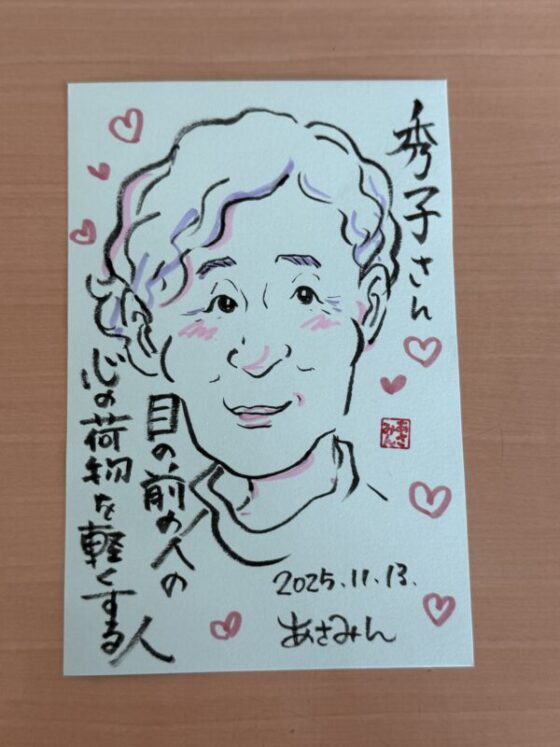 秀子さん
目の前の人の
心の荷物を軽くする人
2025.11.13.
あさみん
あさみん